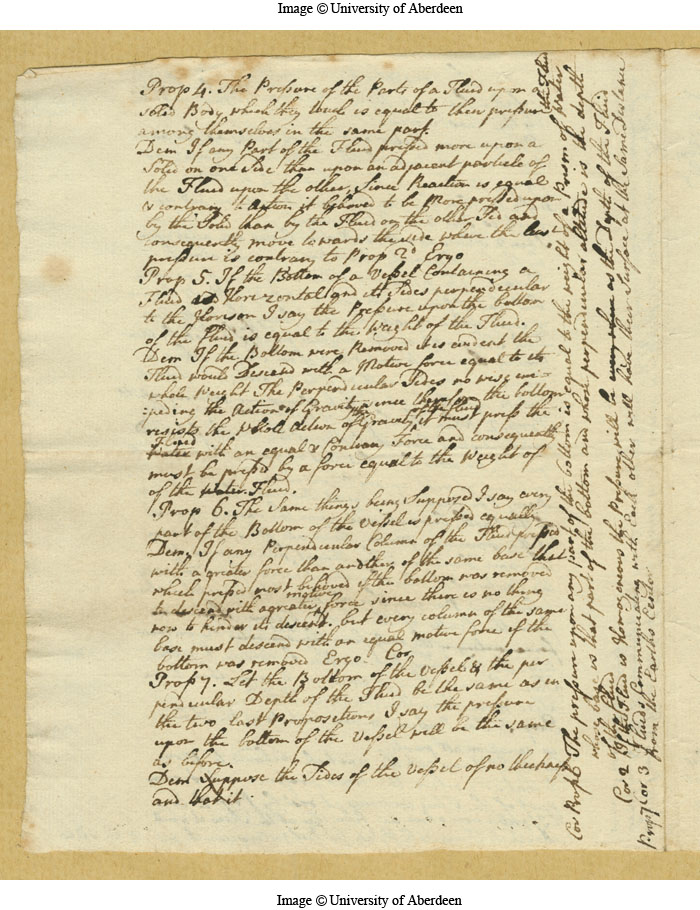 Image © University of Aberdeen
Prop 4. The Pressure of the Parts of a Fluid upon a
solid Body which they touch is equal to their pressure
among themselves in the same part.
Dem If any Part of the Fluid pressed more upon a
Solid on one Side than upon an adjacent particle of
the Fluid upon the other, Since Reaction is equal
& contrary to Action it behoved to be More pressed upon
by the Solid than by the Fluid on the other Side and
consequently move towards the side where the less
pressure is contrary to Prop 2d Ergo
Prop 5. If the Bottom of a Vessel Containing a
Fluid Horezontal and its Sides perpendecular
to the Horison I say the Pressure upon the bottom
of the Fluid is equal to the Weight of the Fluid.
Dem If the Bottom were Removed it is evident the
Fluid would Descend with a Motive force equal to its
whole Weight The Perpendecular Sides no wise im=
=peding the Action of Gravity, since therefor the bottom
resists the whole Action of Gravity of the Fluid it must press the
Fluid water with an equal & Contrary Force and consequently
must be press'd by a force equal to the Weight of
of the water Fluid.
Prop 6. The Same things being Supposed I say every
part of the Bottom of the Vessel is pressed equally
Dem. If any Perpendecular Column of the Fluid pressed
with a greater force than another of the same base that
which pressed most behoved if the bottom was removed
to descend with a greater motive force since there is no thing
now to hinder its descent. but every column of the same
base must descend with an equal motive force if the
bottom was removed Ergo. Cor
Prop 7. Let the Bottom of the Vessel & the per
pendicular Depth of the Fluid be the same as in
the two last Propositions I say the pressure
upon the bottom of the Vessel will be the same
as before.
Dem Suppose the Sides of the Vessel of no thickness
and that it
Cor Prop 6 The pressure upon any part of the bottom is equal to the weight of a Prism of water the Fluid
whose base is that part of the bottom and whose perpendicular altitude is the depth
of the Fluid
Cor 2 If the Fluid is Homogeneous the Pressure will be every where as the Depth of the Fluid
Prop 7 Cor 3 Fluids Communicating with Each other will have their Surface at the Same Distance
from the Earths Center
Image © University of Aberdeen